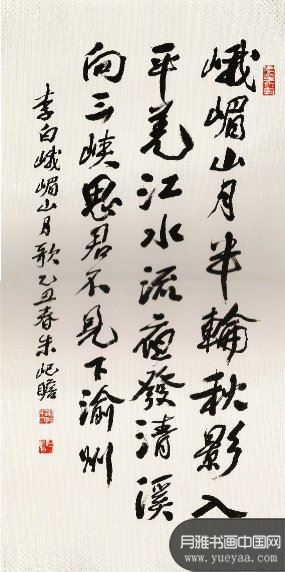 峨嵋山月半輪秋影入
平羌江水流夜發清溪
向三峽思君不見下渝州
李白峨嵋山月歌乙丑春朱屺瞻
月雅书画中国网
www.yueyaa.com